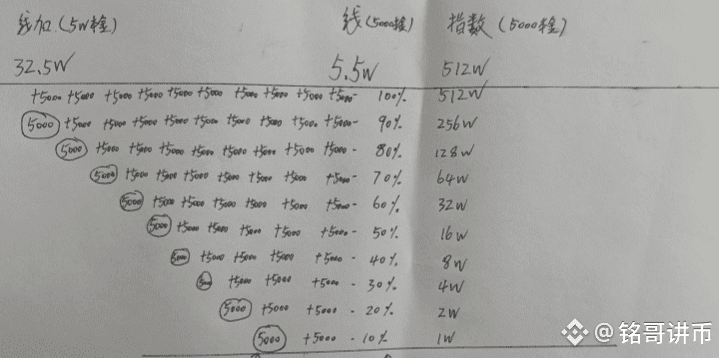 线加（5W栓） 线（5000栓） 指数（5000栓）
32.5W 5.5W 512W
+5000 +5000 +5000 +5000 +5000 +5000 +5000 +5000 +5000 +5000- 100% 512W
5000 +5000 +5000 +5000 +5000 +5000 +5000 +5000 +5000 +5000- 90% 256W
5000 +5000 +5000 +5000 +5000 +5000 +5000 +5000 +5000- 80% 128W
5000 +5000 +5000 +5000 +5000 +5000 +5000 +5000- 70% 64W
5000 +5000 +5000 +5000 +5000 +5000 +5000- 60% 32W
5000 +5000 +5000 +5000 +5000 +5000- 50% 16W
5000 +5000 +5000 +5000 +5000- 40% 8W
500 +5000 +5000 +5000- 30% 4W
5000 +5000 +5000- 20% 2W
5000 +5000- 10% 1W
@铭哥讲币